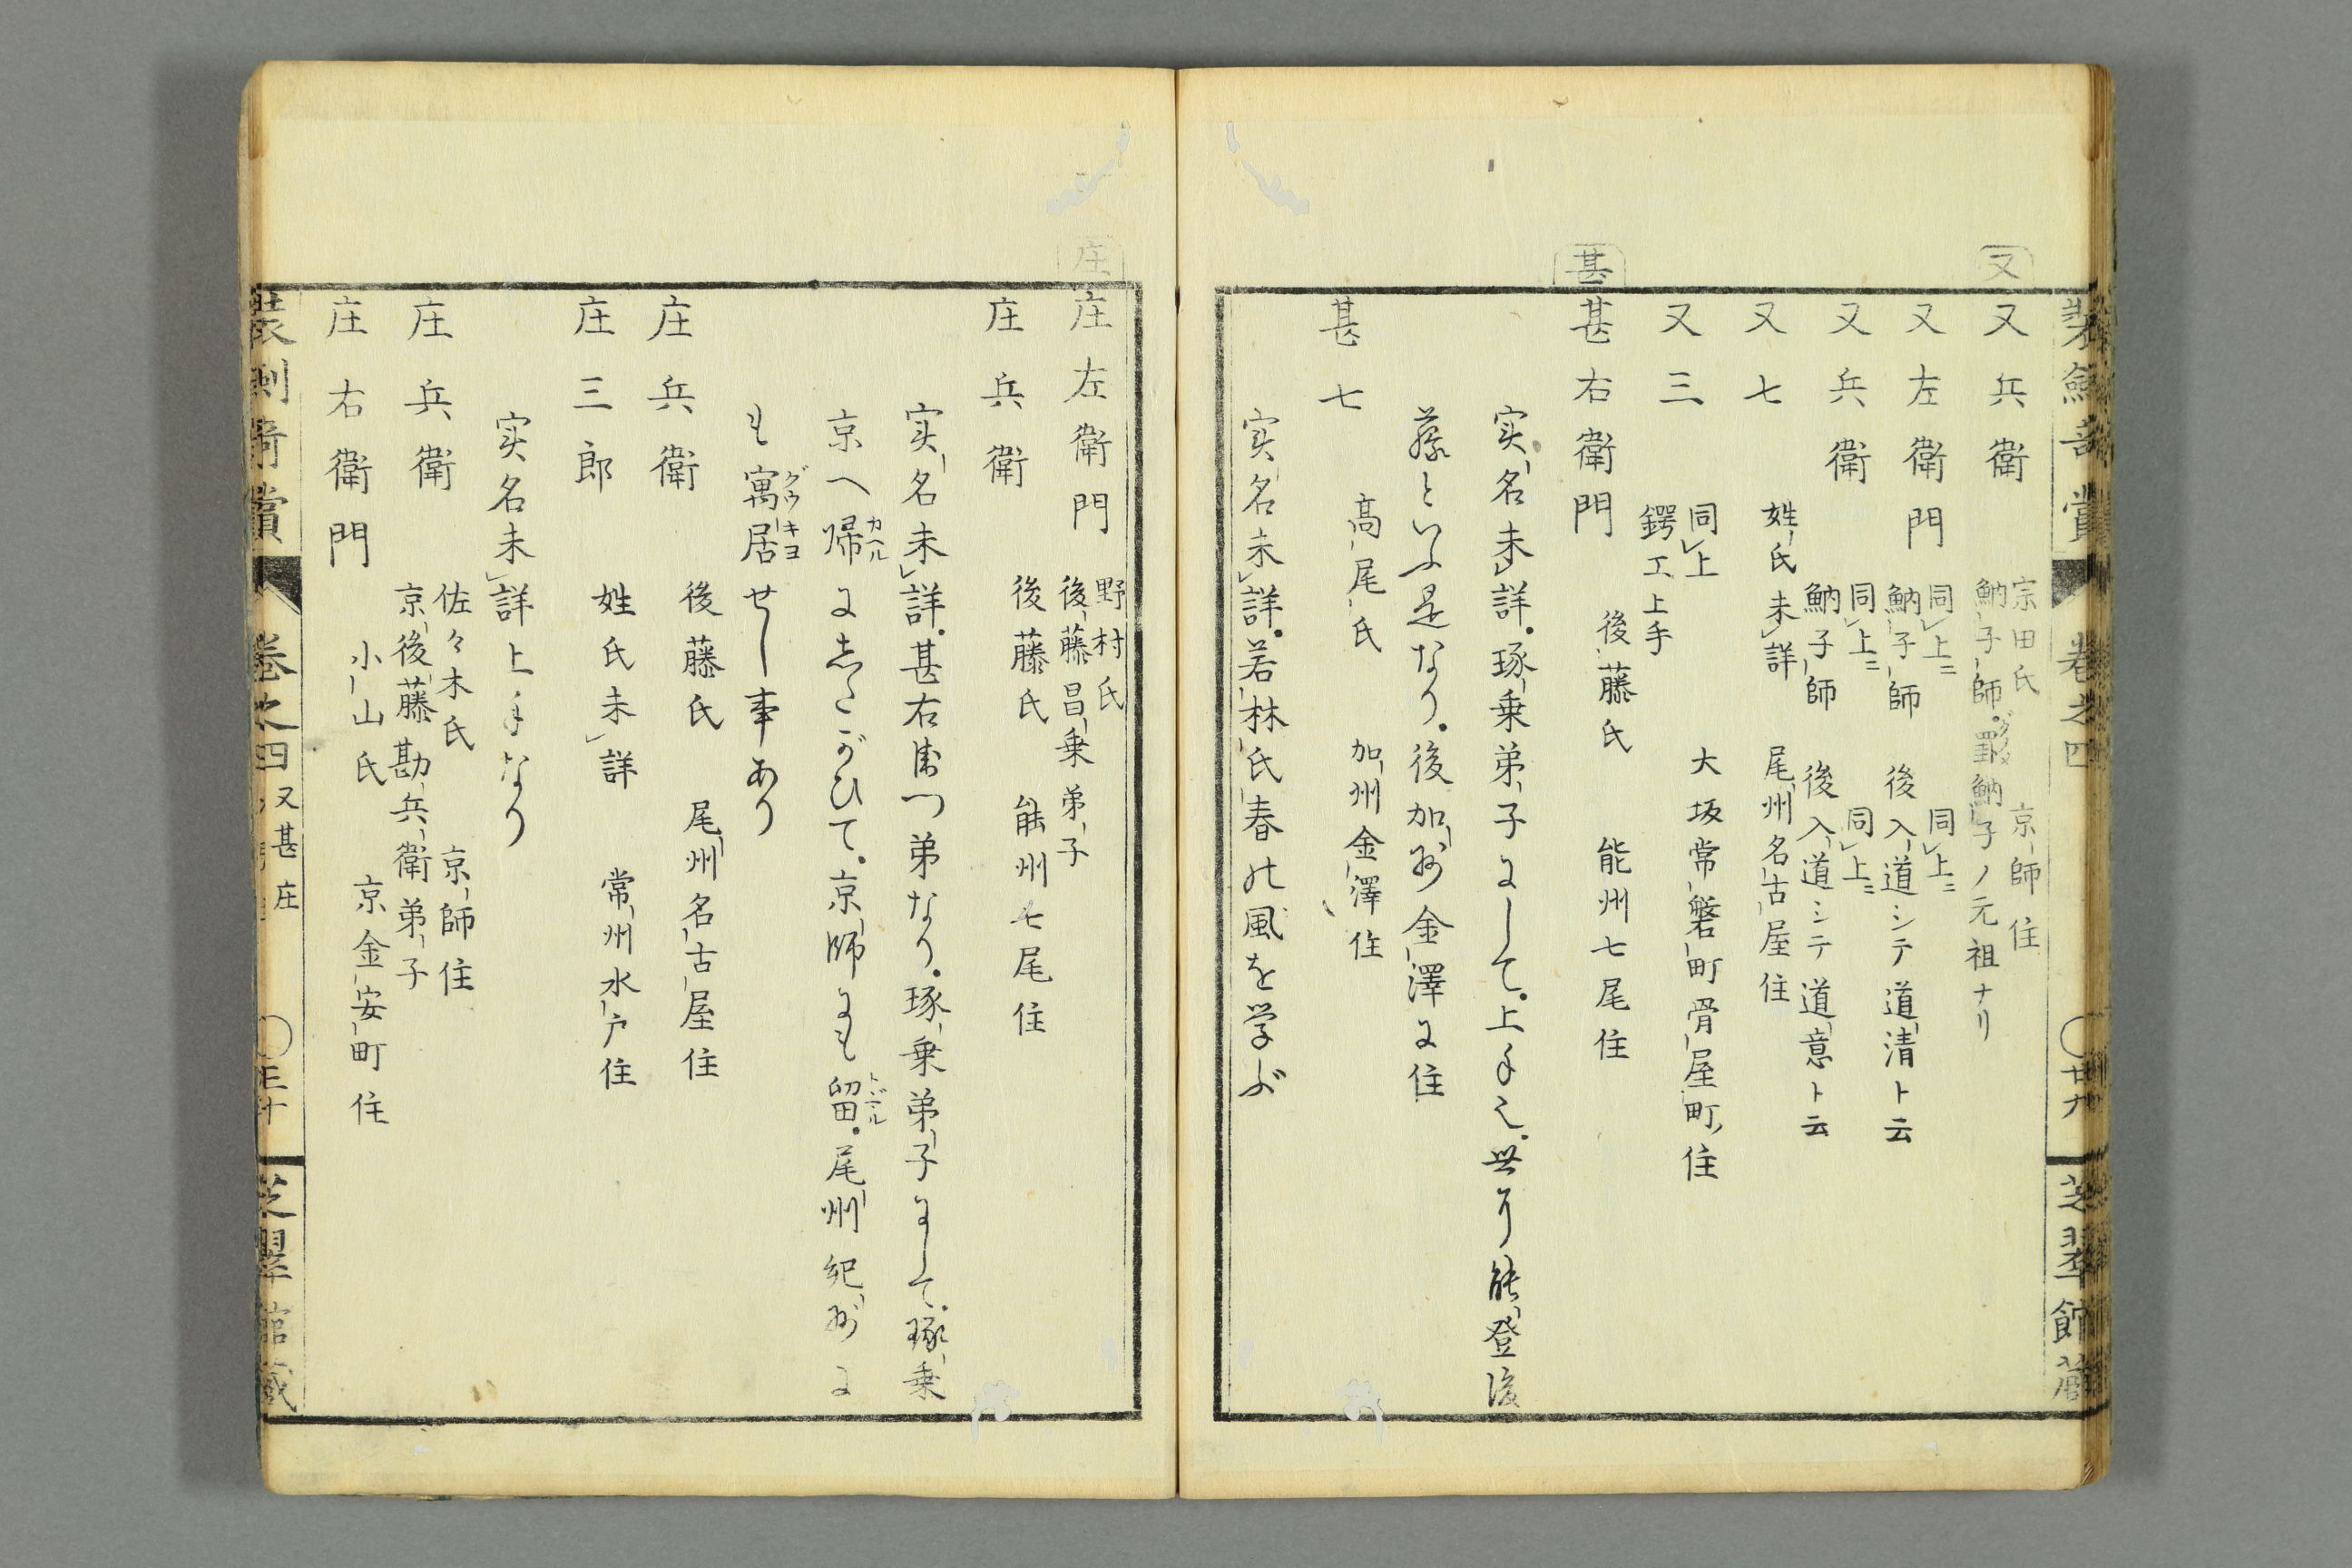 装劔奇賞 巻之四 ○廿九 芝翠館蔵
又
又兵衛 宗田氏 京師住
魶子師。魶子ノ元祖ナリ
又左衛門 同上ニ 同上ニ
魶子師 後入道シテ道清ト云
又兵衛 同上ニ 同上ニ
魶子師 後入道シテ道意ト云
又七 姓氏未詳 尾州名古屋住
又三 同上 大坂常磐町骨屋町住
鍔工上手
甚
甚右衛門 後藤氏 能州七尾住
実名未詳。琢乗弟子にして。上手也。世に能登後
藤といふ是なり。後加州金澤に住
甚七 高尾氏 加州金澤住
実名未詳。若林氏春の風を学ぶ
庄
庄左衛門 野村氏
後藤昌乗弟子
庄兵衛 後藤氏 能州七尾住
実名未詳。甚右衛門弟なり。琢乗弟子にして。琢乗
京へ帰カヘルにしたがひて。京師にも留トドマル。尾州紀州に
も寓居グウキヨせし事あり
庄兵衛 後藤氏 尾州名古屋住
庄三郎 姓氏未詳 常州水戸住
実名未詳上手なり
庄兵衛 佐々木氏 京師住
京後藤勘兵衛弟子
庄右衛門 小山氏 京金安町住
装劔奇賞 巻之四 又甚庄 ○三十 芝翠館蔵